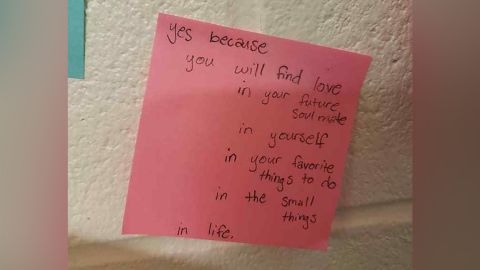 yes because
you will find love
in your future
soulmate
in yourself
in your favorite
things to do
in the small
things
in life.